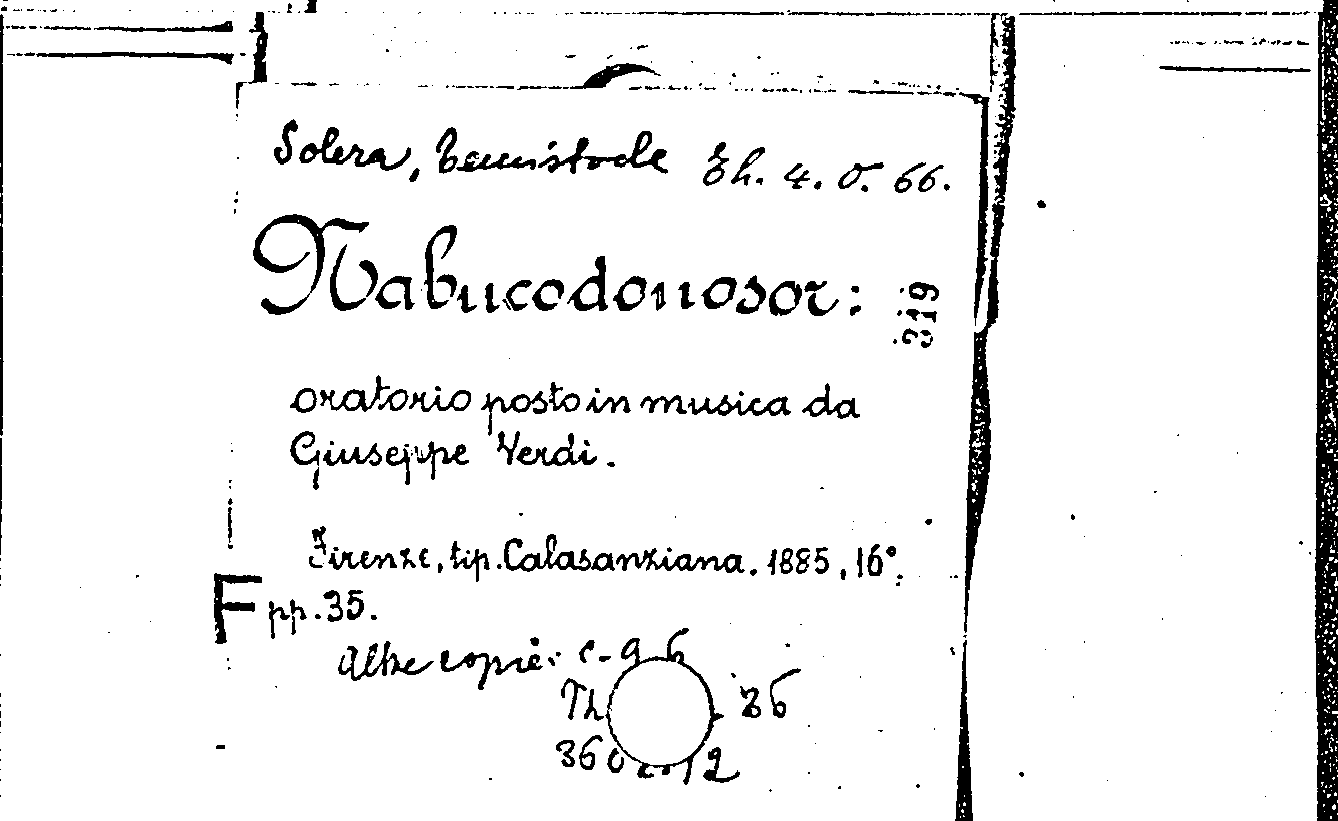 Solera, Temistocle Th. 4. O. 66.
Nabucodonosor:
319
oratorio posto in musica da
Giuseppe Verdi.
Firenze, tip. Calasanziana. 1885, 16°.
F pp. 35.
Altre copie: C. 9 6
Th 36
360 12